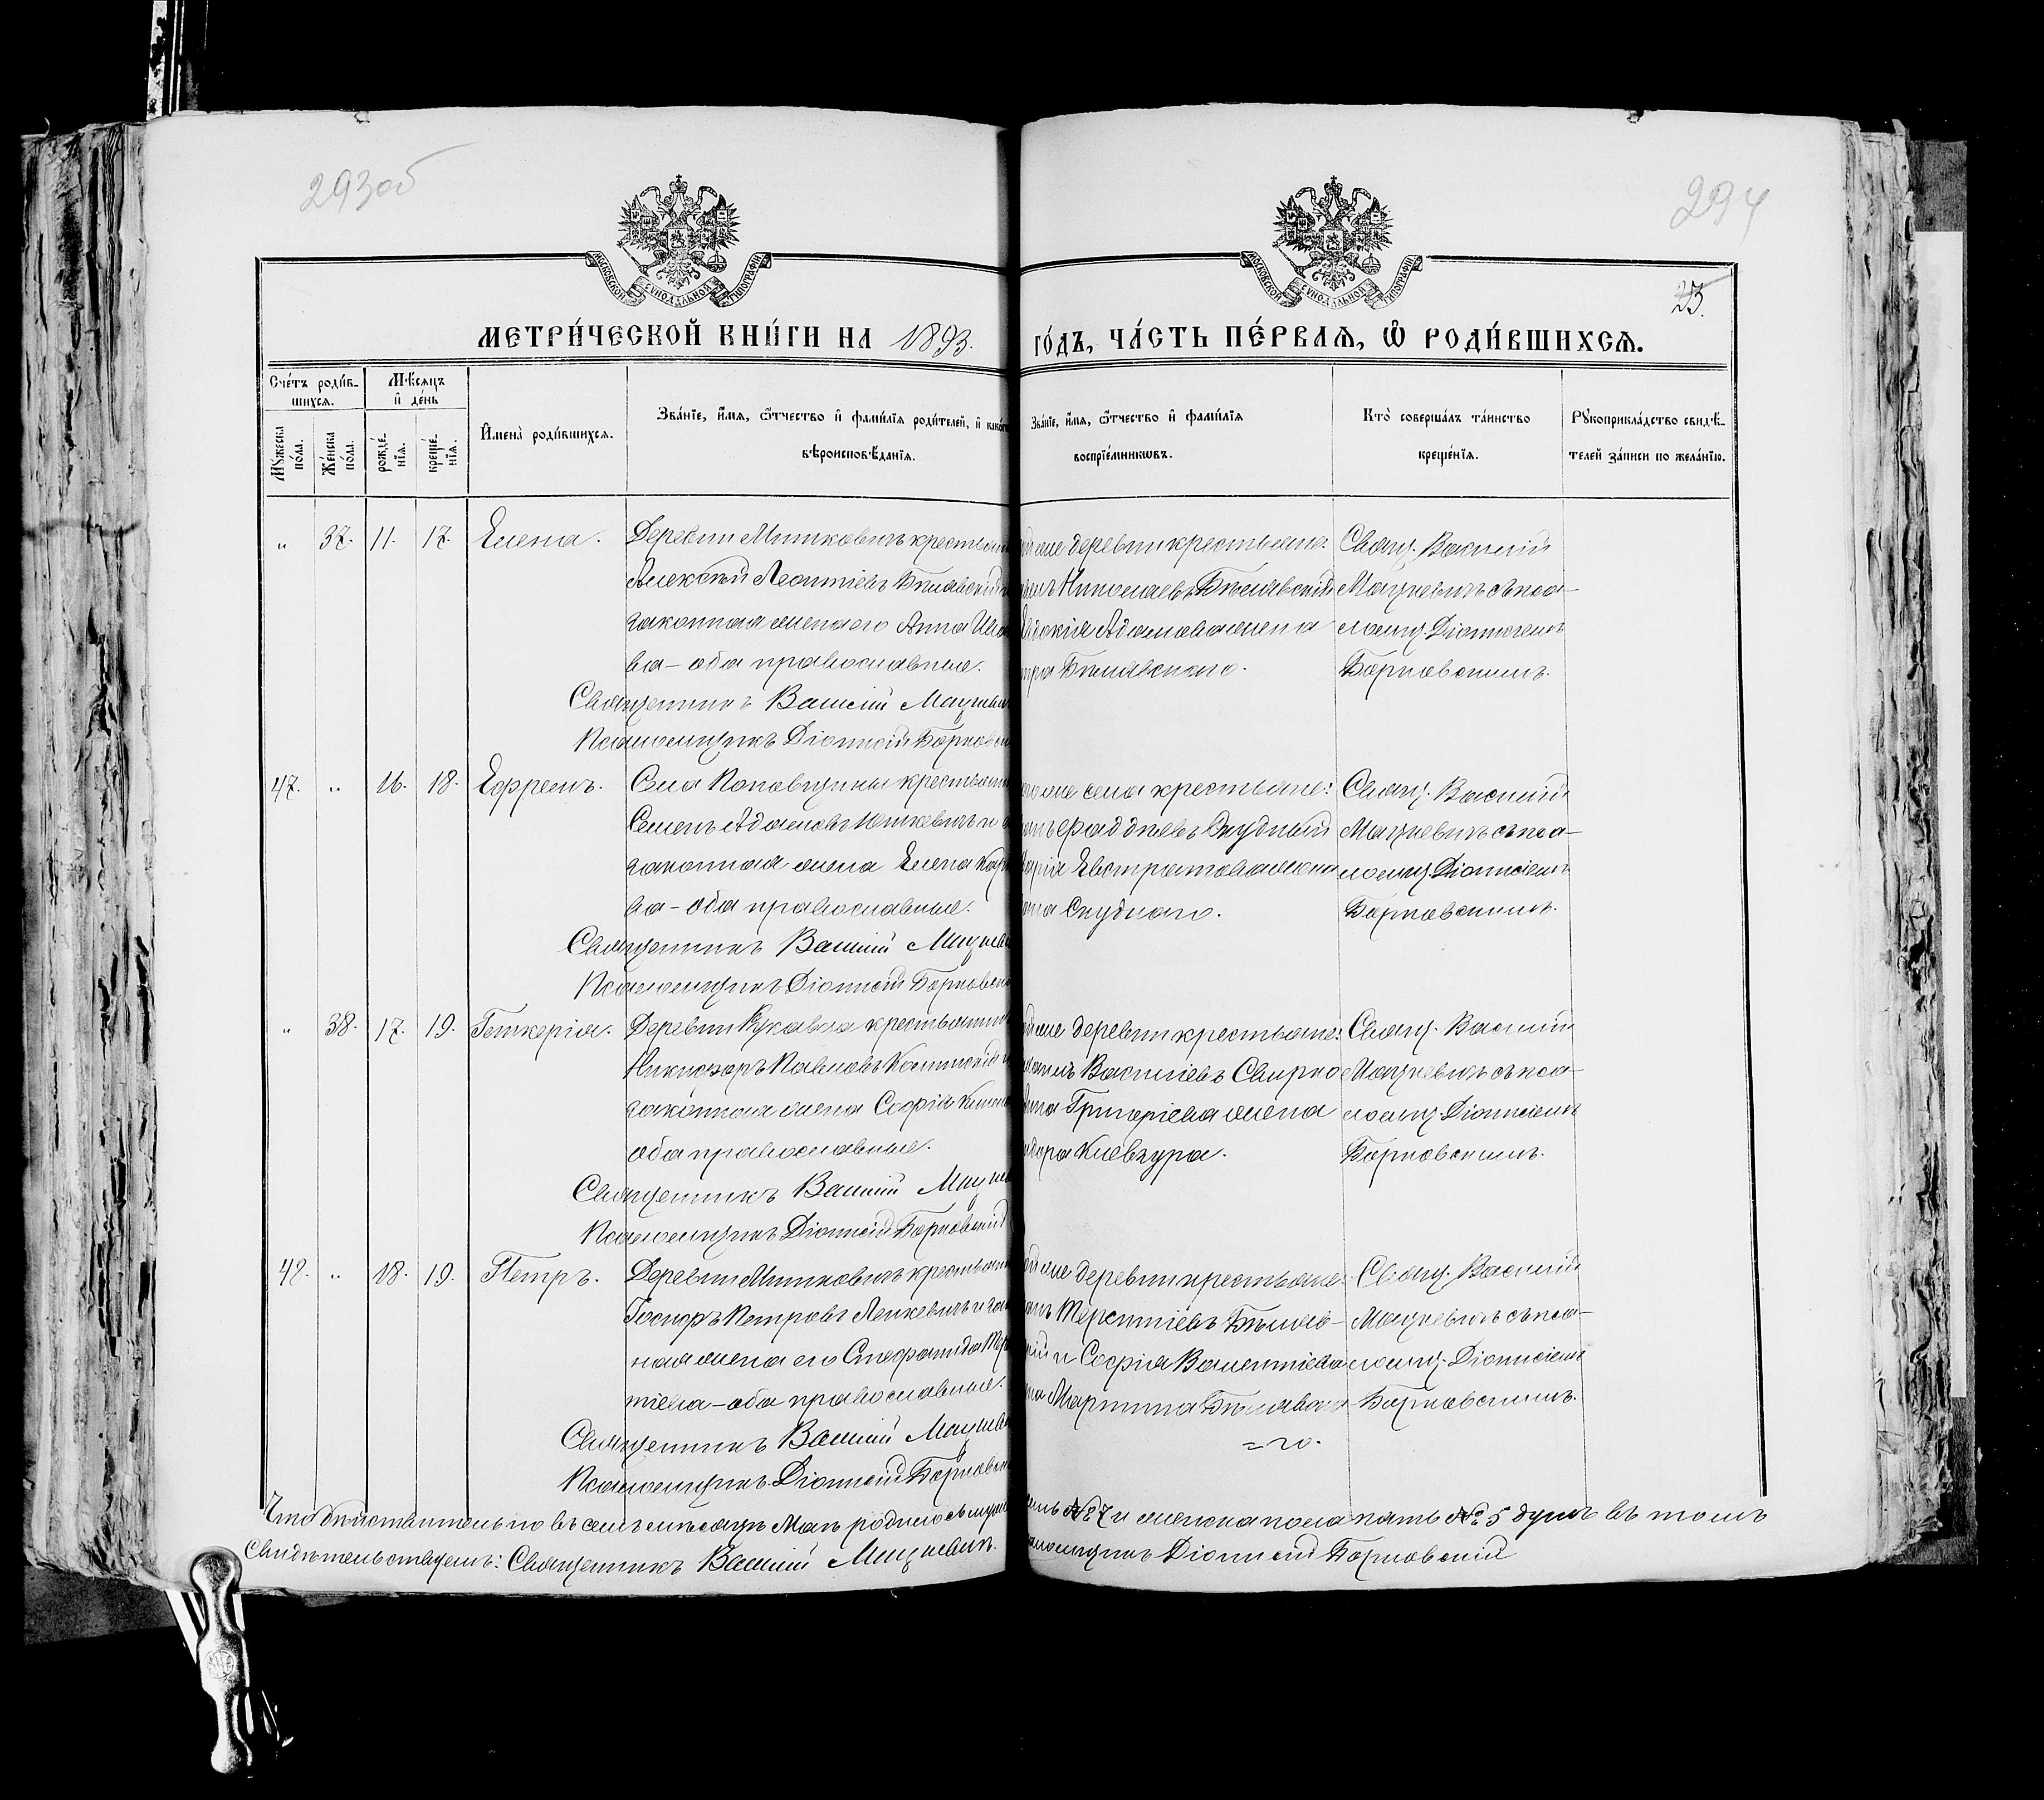 293об
294
23.
МОСКОВСКОЙ СѴНОДАЛЬНОЙ ТИПОГРАФІИ
МОСКОВСКОЙ СѴНОДАЛЬНОЙ ТИПОГРАФІИ
МЕТРИ́ЧЕСКОЙ КНИ́ГИ НА 1893.
ГО́ДЪ, ЧА́СТЬ ПЕ́РВАЯ, Ѡ РОДИ́ВШИХСЯ.
Сче́тъ роди́в-
шихся.
Мꙋ́жеска по́ла.
Же́нска по́ла.
Мѣ́сяцъ
и҆ де́нь
рожде́-
нїя.
креще́-
нїя.
И҆мена̀ роди́вшихся.
Зва́нїе, и҆́мя, ѻ҆́тчество и҆ фами́лїя роди́телей, и҆ како́гѡ
вѣроисповѣ́данїя.
Зва́нїе, и҆́мя, ѻ҆́тчество и҆ фами́лїя
воспрїе́мникѡвъ.
Кто̀ соверша́лъ та́инство
креще́нїя.
Рꙋкоприкла́дство свидѣ́-
телей за́писи по жела́нїю.
" 37. 11. 17. Елена.
Деревни Мишковичъ крестьян
Алексѣй Леонтіевъ Бѣлявскій
законная жена его Анна
ва – оба православные.
Священникъ Василій Мацкеви
Псаломщикъ Діонисій Борковск
же деревни крестьяне:
Николаевъ Бѣлявскій
Евдокія Адамова жена
тра Бѣлявскаго.
Свящ. Василій
Мацкевичъ съ пса-
ломщ. Діонисіемъ
Борковскимъ.
47. " 16. 18. Ефремъ.
Села Поповщины крестьян
Семенъ Адамовъ Юшкевичъ и
законная жена Елена Кар
ва – оба православные.
Священникъ Василій Мацкев
Псаломщикъ Діонисій Борковск
же села крестьяне:
Фаддѣевъ Скудный
Марія Евстратова жена
Скуднаго.
Свящ. Василій
Мацкевичъ съ пса-
ломщ. Діонисіемъ
Борковскимъ.
" 38. 17. 19. Гликерія.
Деревни крестьянин
Никифоръ Павловъ
законная жена Софія
оба православные.
Священникъ Василій Мацкев
Псаломщикъ Діонисій Борковскій
же деревни крестьяне:
Василіевъ Свирко
Григоріева жена
дора
Свящ. Василій
Мацкевичъ съ пса-
ломщ. Діонисіемъ
Борковскимъ.
42. " 18. 19. Петръ.
Деревни Мишковичъ крестьян
Іосифъ Петровъ и зако
ная жена его Стефанида Тер
тіева – оба православные.
Священникъ Василій Мацкев
Псаломщикъ Діонисій Борковск
же деревни крестьяне:
Терентіевъ Бѣляв-
кій и Софія Валентіева
на Мартина Бѣлявска
= го.
Свящ. Василій
Мацкевичъ съ пса-
ломщ. Діонисіемъ
Борковскимъ.
Что дѣйствительно въ семъ мѣсяцѣ Маѣ родилось муж
емь № 7 и женска пола пять № 5 душъ въ томъ
Свидѣтельствуемъ: Священникъ Василій Мацкевичъ.
аломщикъ Діонисій Борковскій